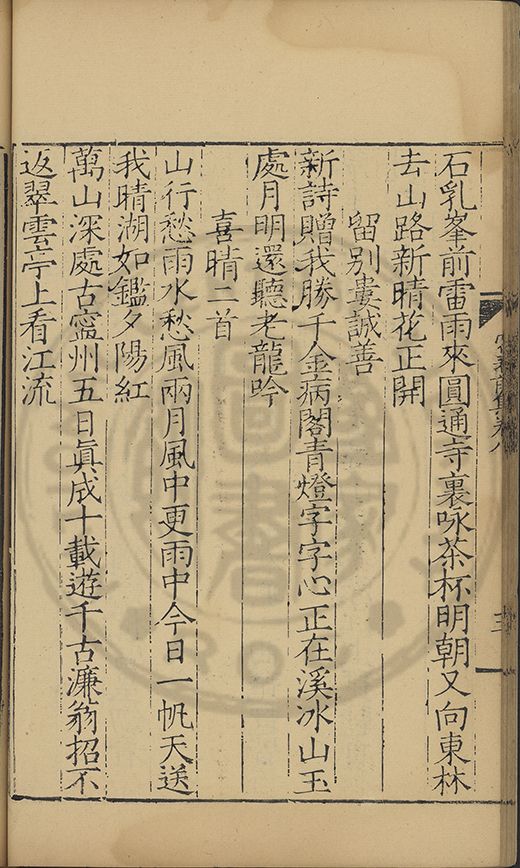 石乳峯前雷雨來圓通寺裏咏茶杯明朝又向東林
去山路新晴花正開
留別婁誠善
新詩贈我勝千金病閣青燈字字心正在溪冰山玉
處月明還聽老龍吟
喜晴二首
山行愁雨水愁風兩月風中更雨中今日一帆天送
我晴湖如鑑夕陽紅
萬山深處古寧州五日眞成十載遊千古濂翁招不
返翠雲亭上看江流